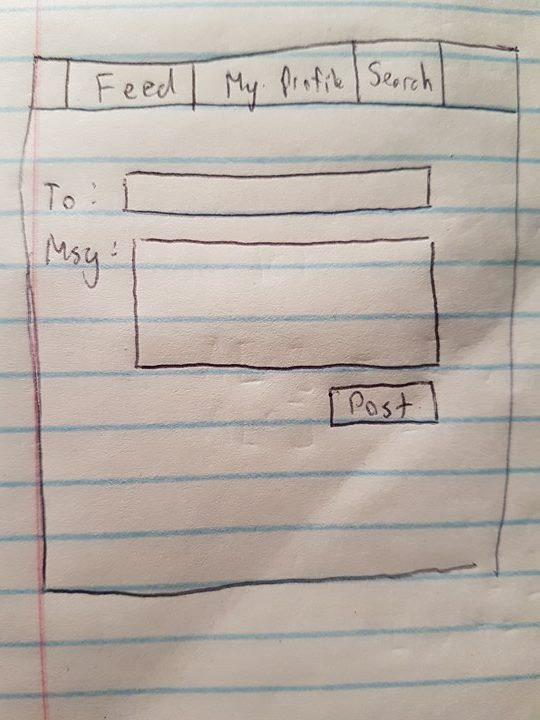 Feed My Profile Search
To:
Msg:
Post